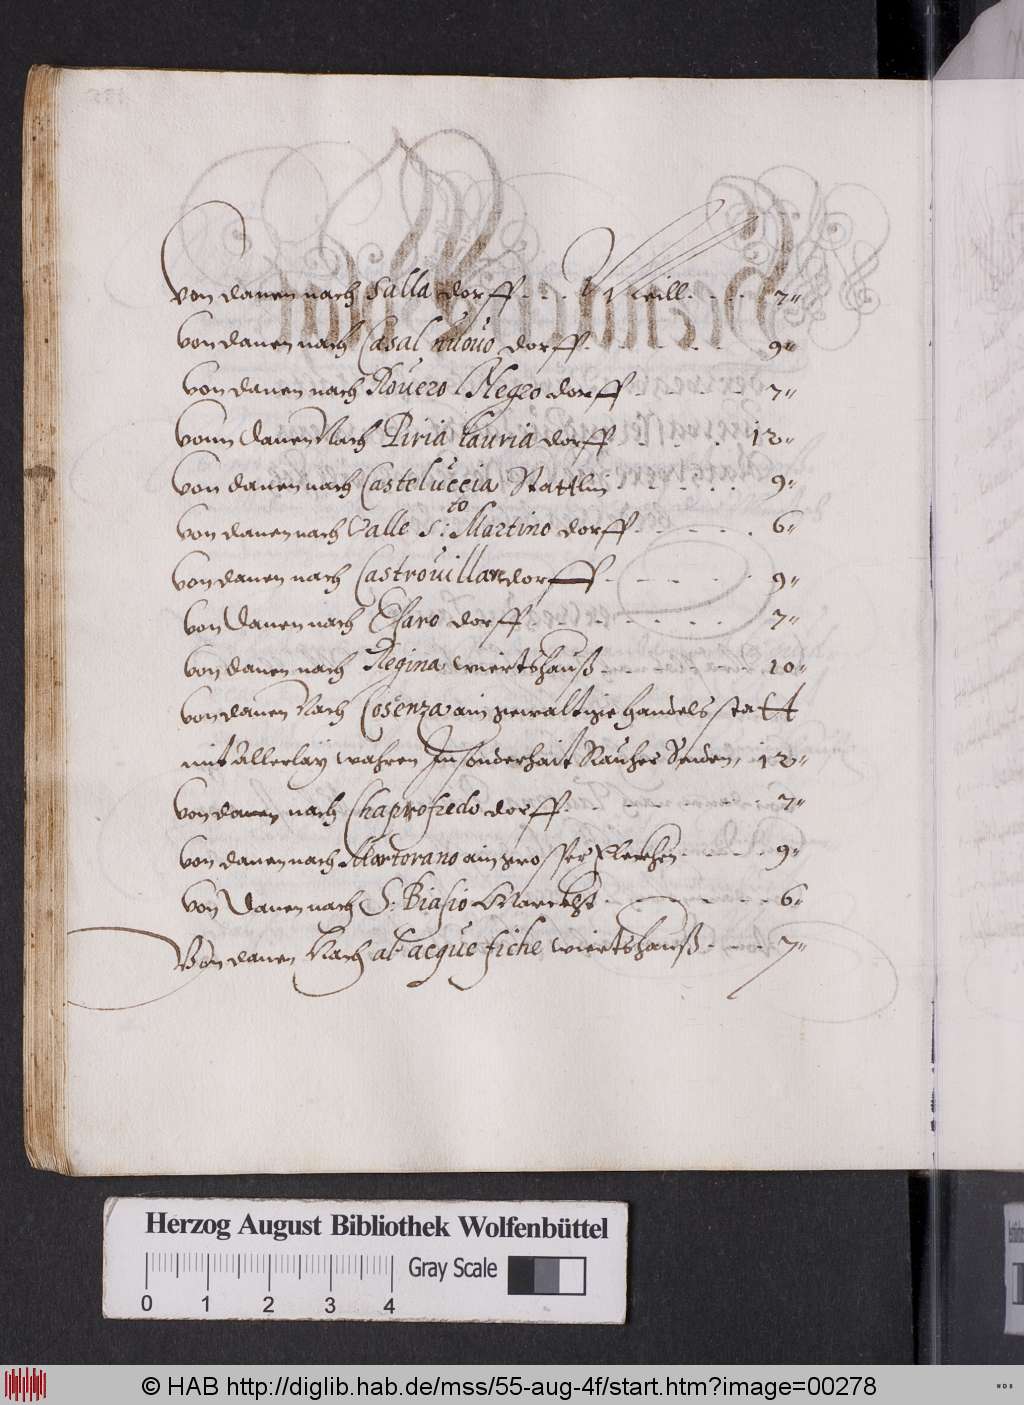 von danen nach Salla dorff . . . Meill . . . 7
von danen nach Casal nuovo dorff . . . 9
von danen nach Rovero Negro dorff . . . 7
vonn danen Nach Piria Lauria dorff . . . 12
von danen nach Casteluccia Stattlin . . . 9
von danen nach Valle S:to Martino dorff . . . 6
von danen nach Castrovillare dorff . . . 9
von danen nach Esaro dorff . . . 7
von danen nach Regina wiertshauß . . . 10
von danen Nach Cosenza ain gewaltige handels statt
mit allerlay wahren Insonderhait Rauher Seiden, 12
von danen nach Chaprosedo dorff . . . 7
von danen nach Martorano ain grosser Flecken . . . 9
von danen nach S: Biasio Marckht . . . 6
Von danen Nach al acque fiche wiertshauß . . . 7
Herzog August Bibliothek Wolfenbüttel
Gray Scale
0 1 2 3 4
© HAB http://diglib.hab.de/mss/55-aug-4f/start.htm?image=00278